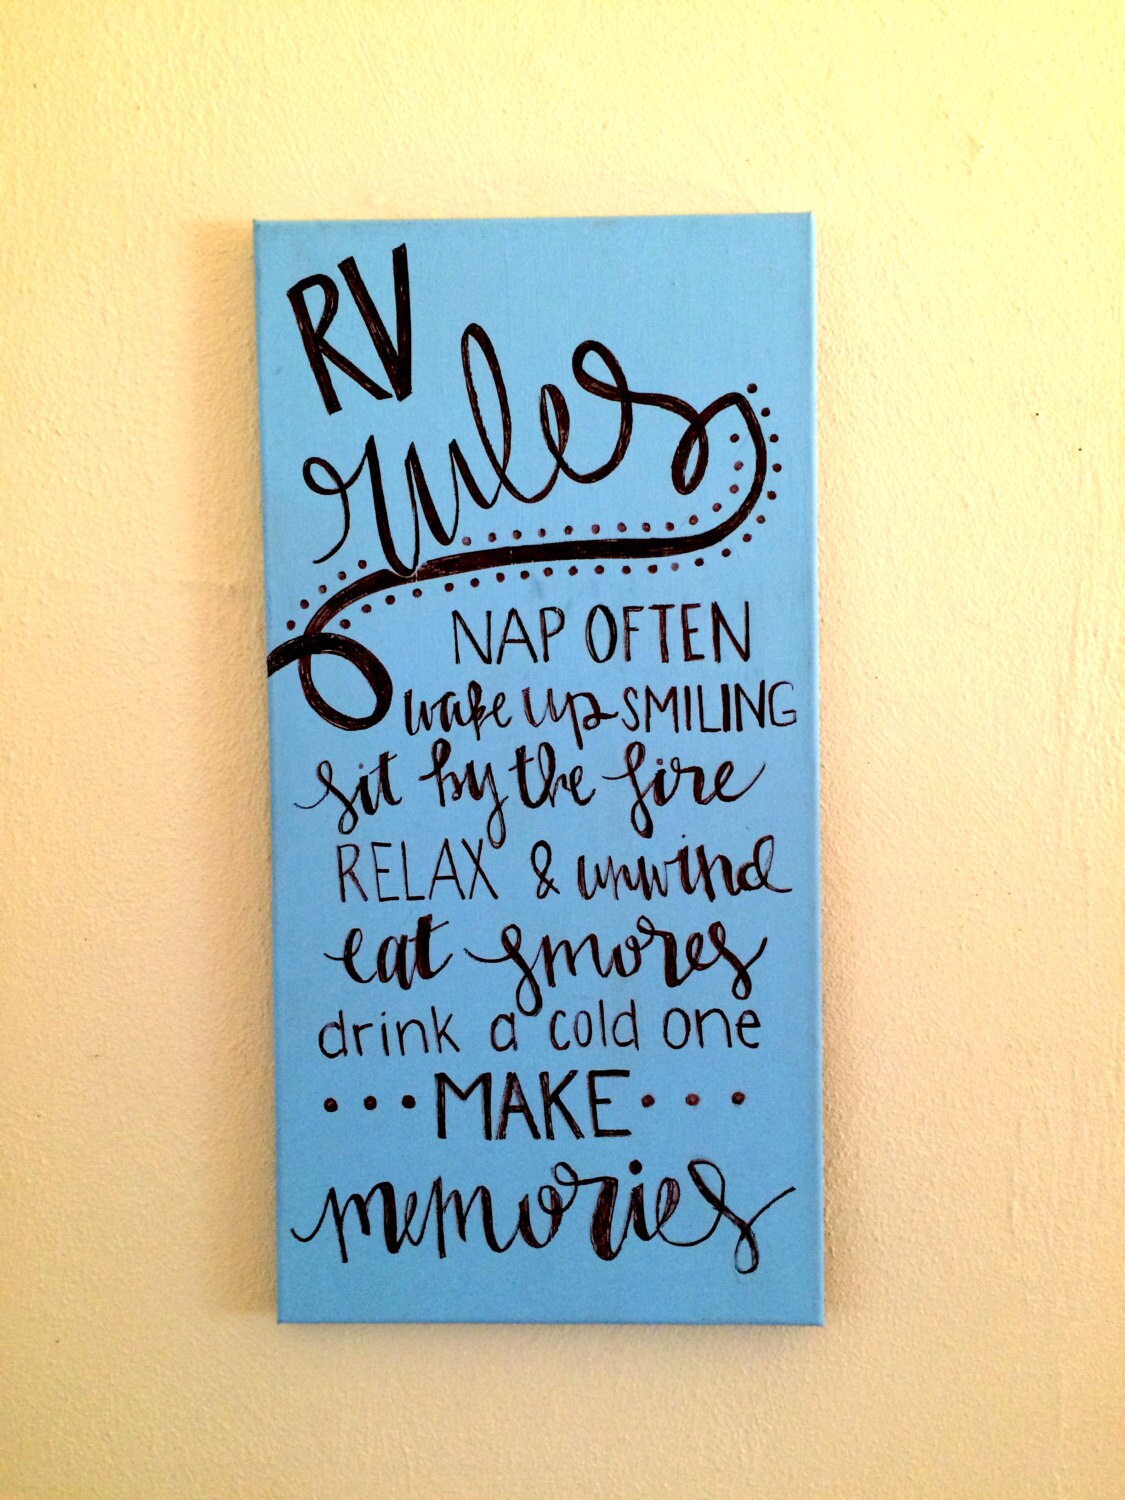 RV
rules
NAP OFTEN
wake up SMILING
sit by the fire
RELAX & unwind
eat smores
drink a cold one
...MAKE...
memories